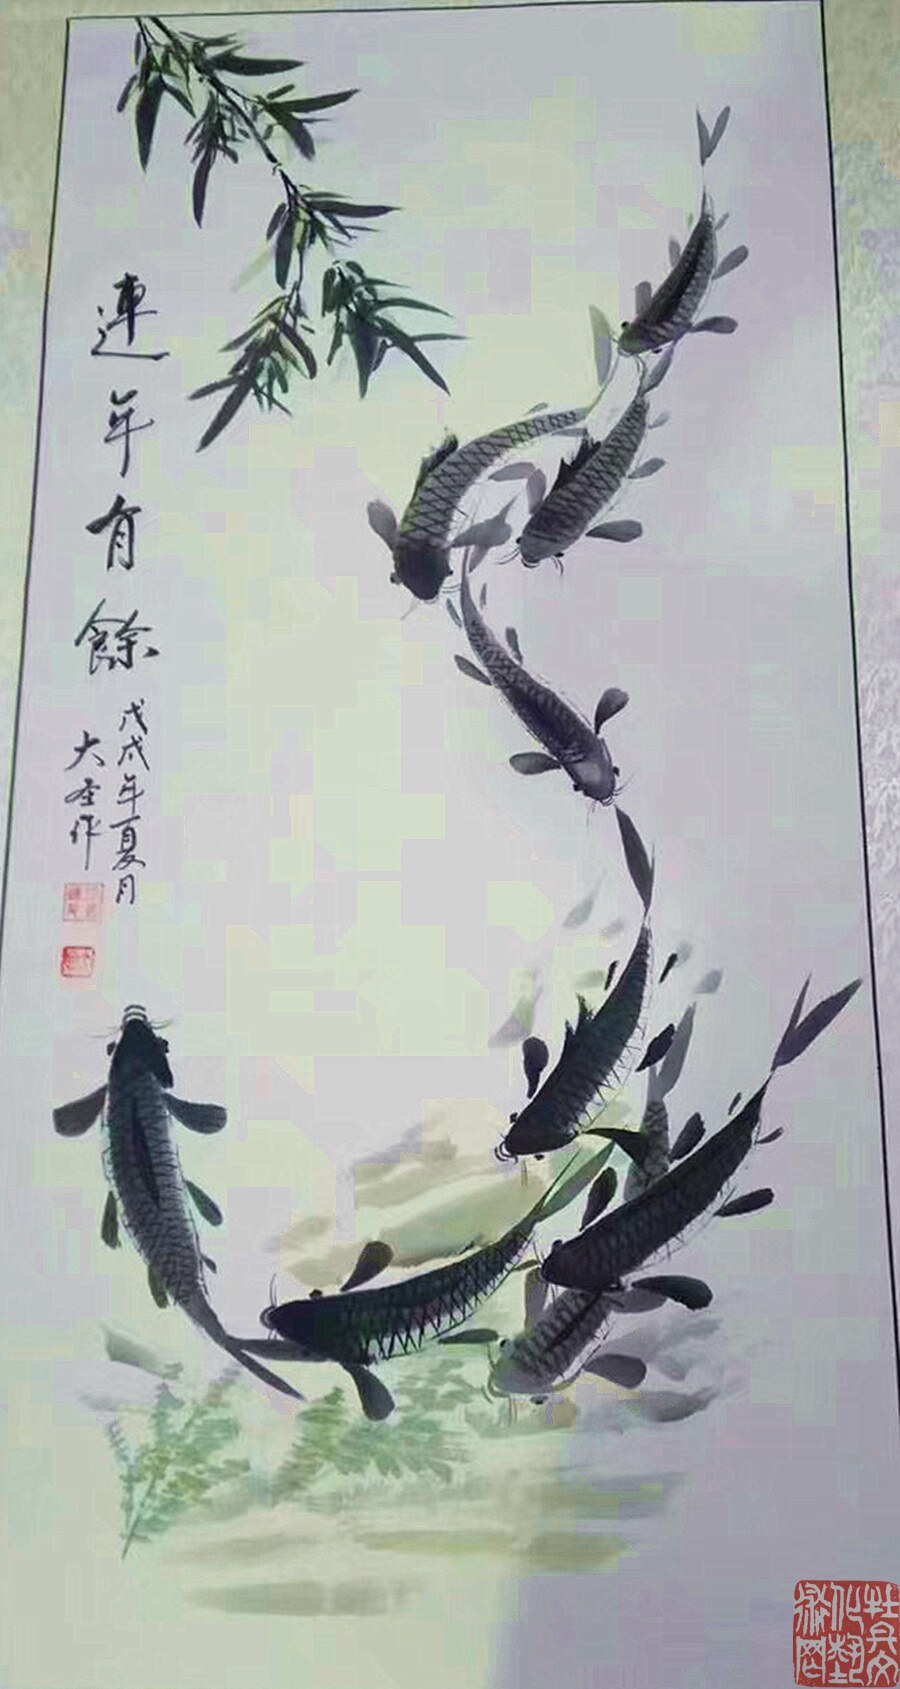 連年有餘
戊戌年夏月
大圣作